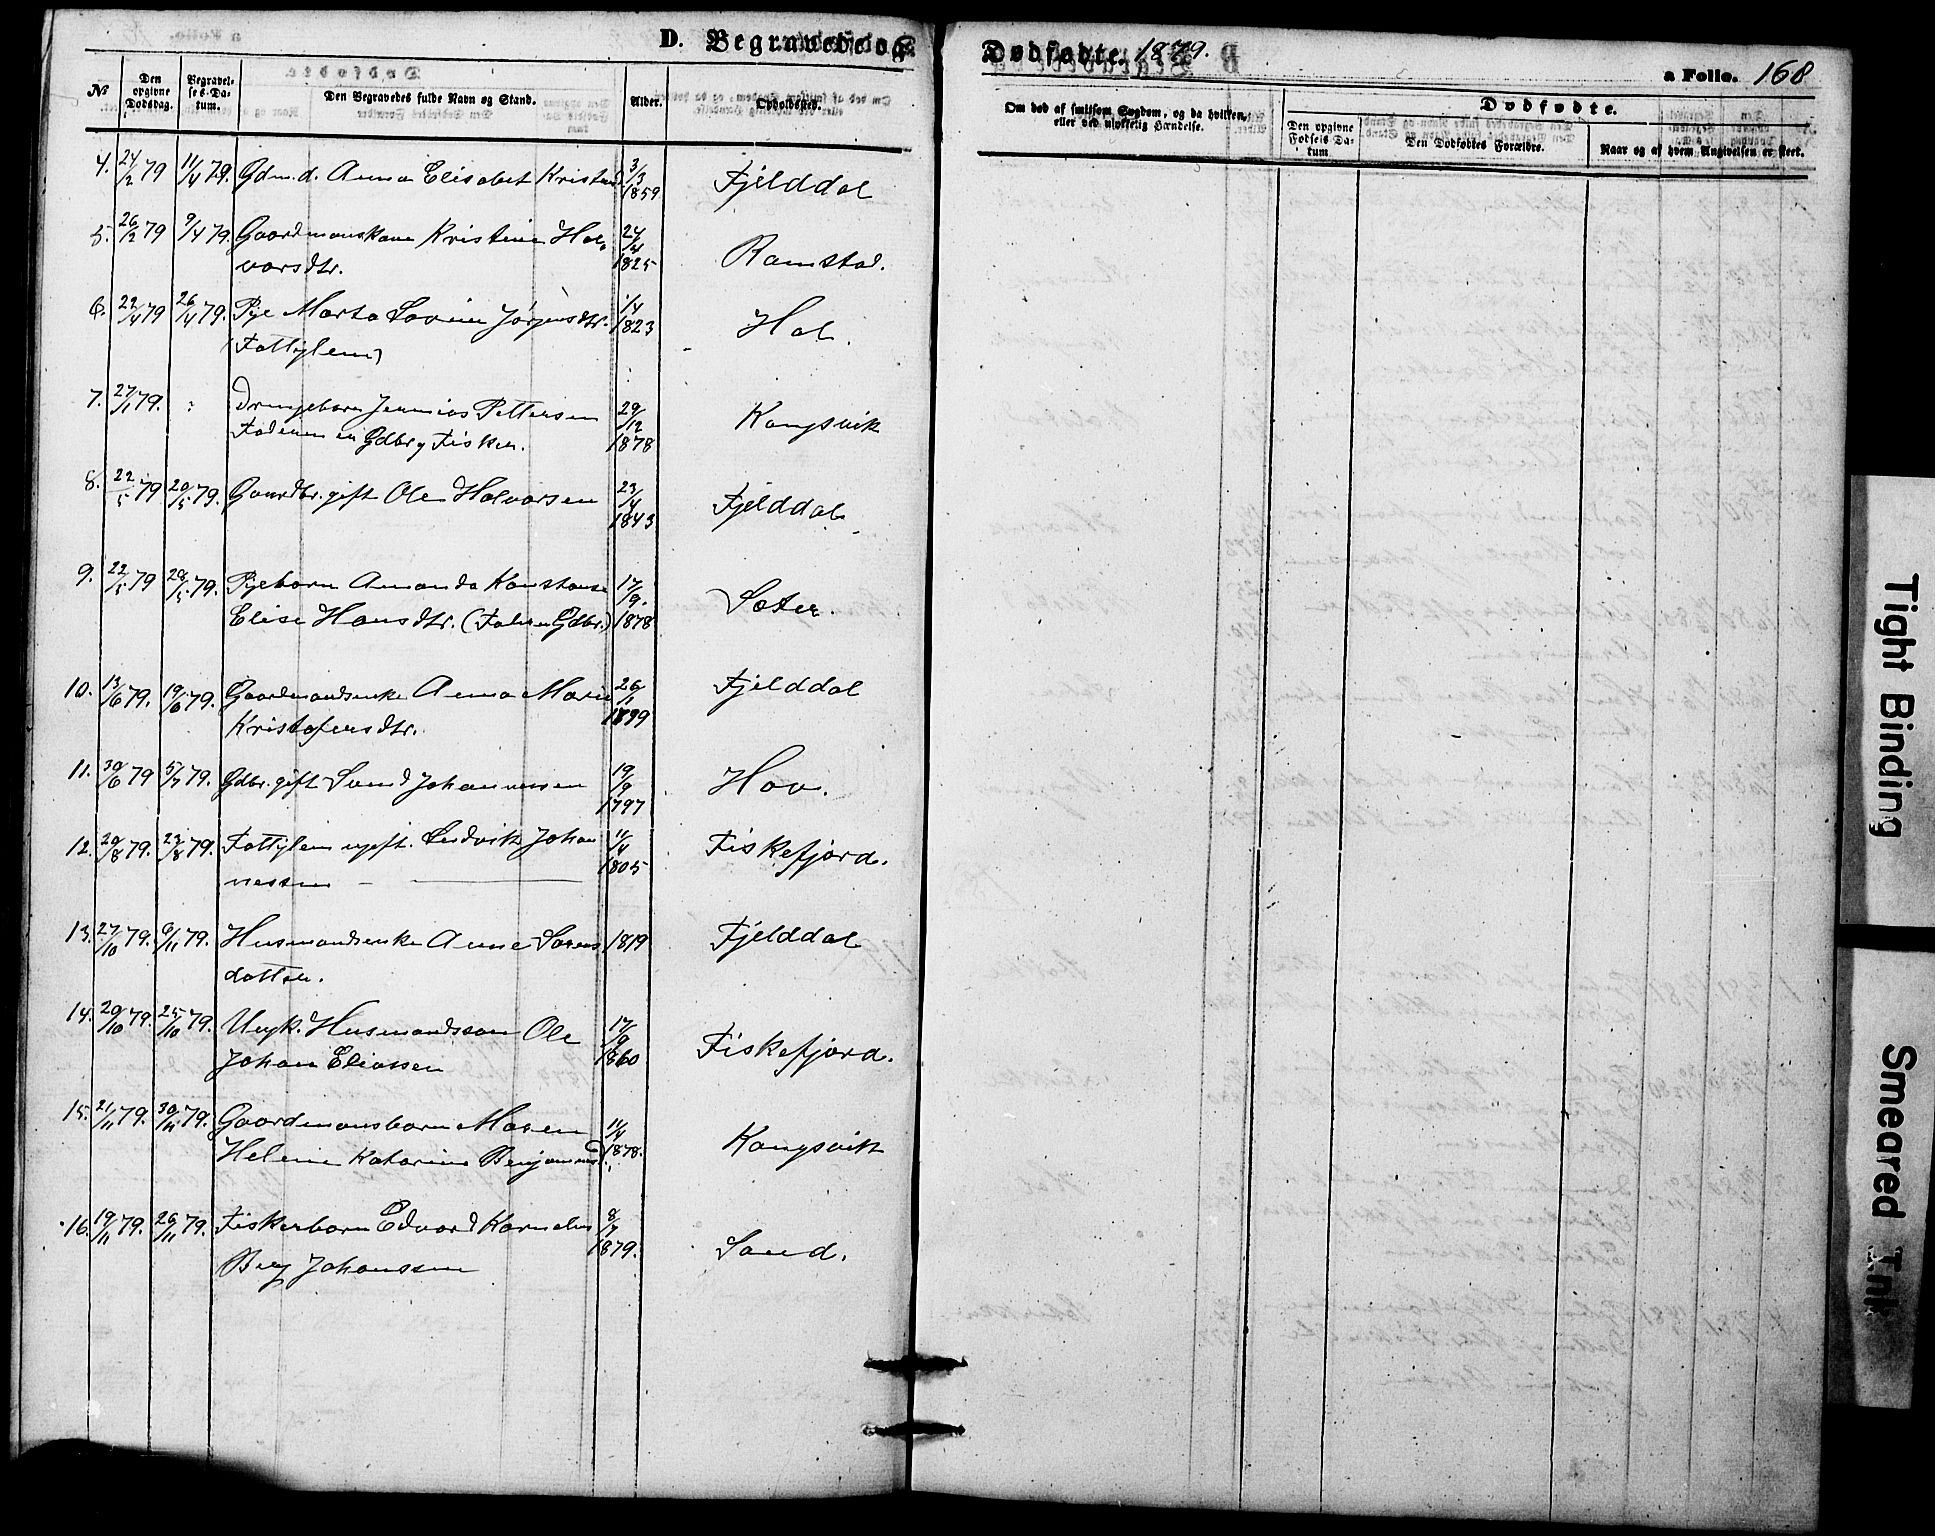 D. Begravede og Dødfødte. 1879.
a Folio. 168
№ Den opgivne Dødsdag. Begravelses-Datum. Den Begravedes fulde Navn og Stand. Alder. Opholdssted.
Om død af smitsom Sygdom, og da hvilken, eller ved ulykkelig Hændelse.
Dødfødte.
Den opgivne Fødsels-Datum Den Dødfødtes Forældre. Naar og af hvem Angivelsen er skeet.
4. 24/2 79 11/4 79. Gdm. d. Anna Elisabet Kristens 3/3 1859 Fjelddal
5. 26/2 79 9/4 79. Gaardmanskone Kristine Hal- 24/4 1825 Ramstad.
varsdtr.
6. 22/4 79 26/4 79. Pige Marta Jørgensdtr. 1/4 1823 Hol.
(Fattiglem)
7. 27/1 79. Drengebarn Jeremias Pettersen 29/12 1878 Kongsvik
Faderen er Gdbr. og Fisker.
8. 22/5 79 20/5 79. Gaardbr. gift Ole Halvorsen 23/4 1843 Fjelddal
9. 22/5 79 28/5 79. Pigebarn Amanda Konstanse 17/9. 1878 Sæter.
Elise Hansdtr. (Gdbr.)
10. 13/6 79. 19/6 79. Gaardmandsenke Anna Marie 26/1 Fjelddal
Kristofersdtr.
11. 30/6 79 5/7 79. Gdbr. gift Svend Johannessen 19/9 1797 Hov.
12. 20/8 79. 24/8 79. Fattiglem ugift. Ludvik Johan 11/4 1805 Fiskefjord.
nessen
13. 27/10 79. 6/11 79. Husmandsenke Anne Sørens 1819 Fjelddal
datter.
14. 20/10 79. 25/10 79. Ungk. Husmandssøn Ole 17/9 1860 Fiskefjord.
Johan Eliassen
15. 21/11 79. 30/11 79. Gaardmansbarn Maren 11/4 1878. Kongsvik
Helene Katarina Benjaminsd.
16. 19/11 79. 26/11 79. Fiskerbarn Edvard Kornelius 8/7 1879. Sand.
Berg Johanssen
Tight Binding
Smeared Ink